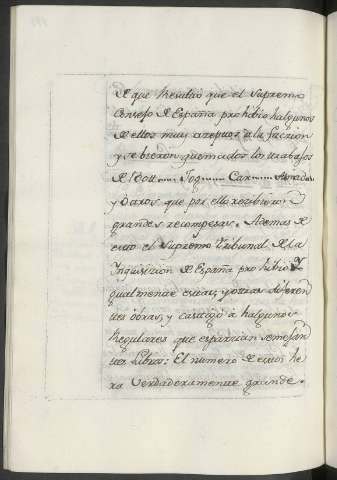 de que Resultó que el Supremo
Consejo de España prohibio halgunos
de ellos mui a la faczion
y se bieron quemados los trabajos
de Dott.... Jog.... Car....
y Daros, que por ello rezibieron
grandes recompesas. Ademas de
esto el Supremo Tribunal de la
Inquisizion de España prohibio Y
gualmente estas, y otras diferen
tes obras, y castigó à halgunos
Regulares que esparzian semejan
tes Libros: El numero de estos he
ra Verdaderamente grande.